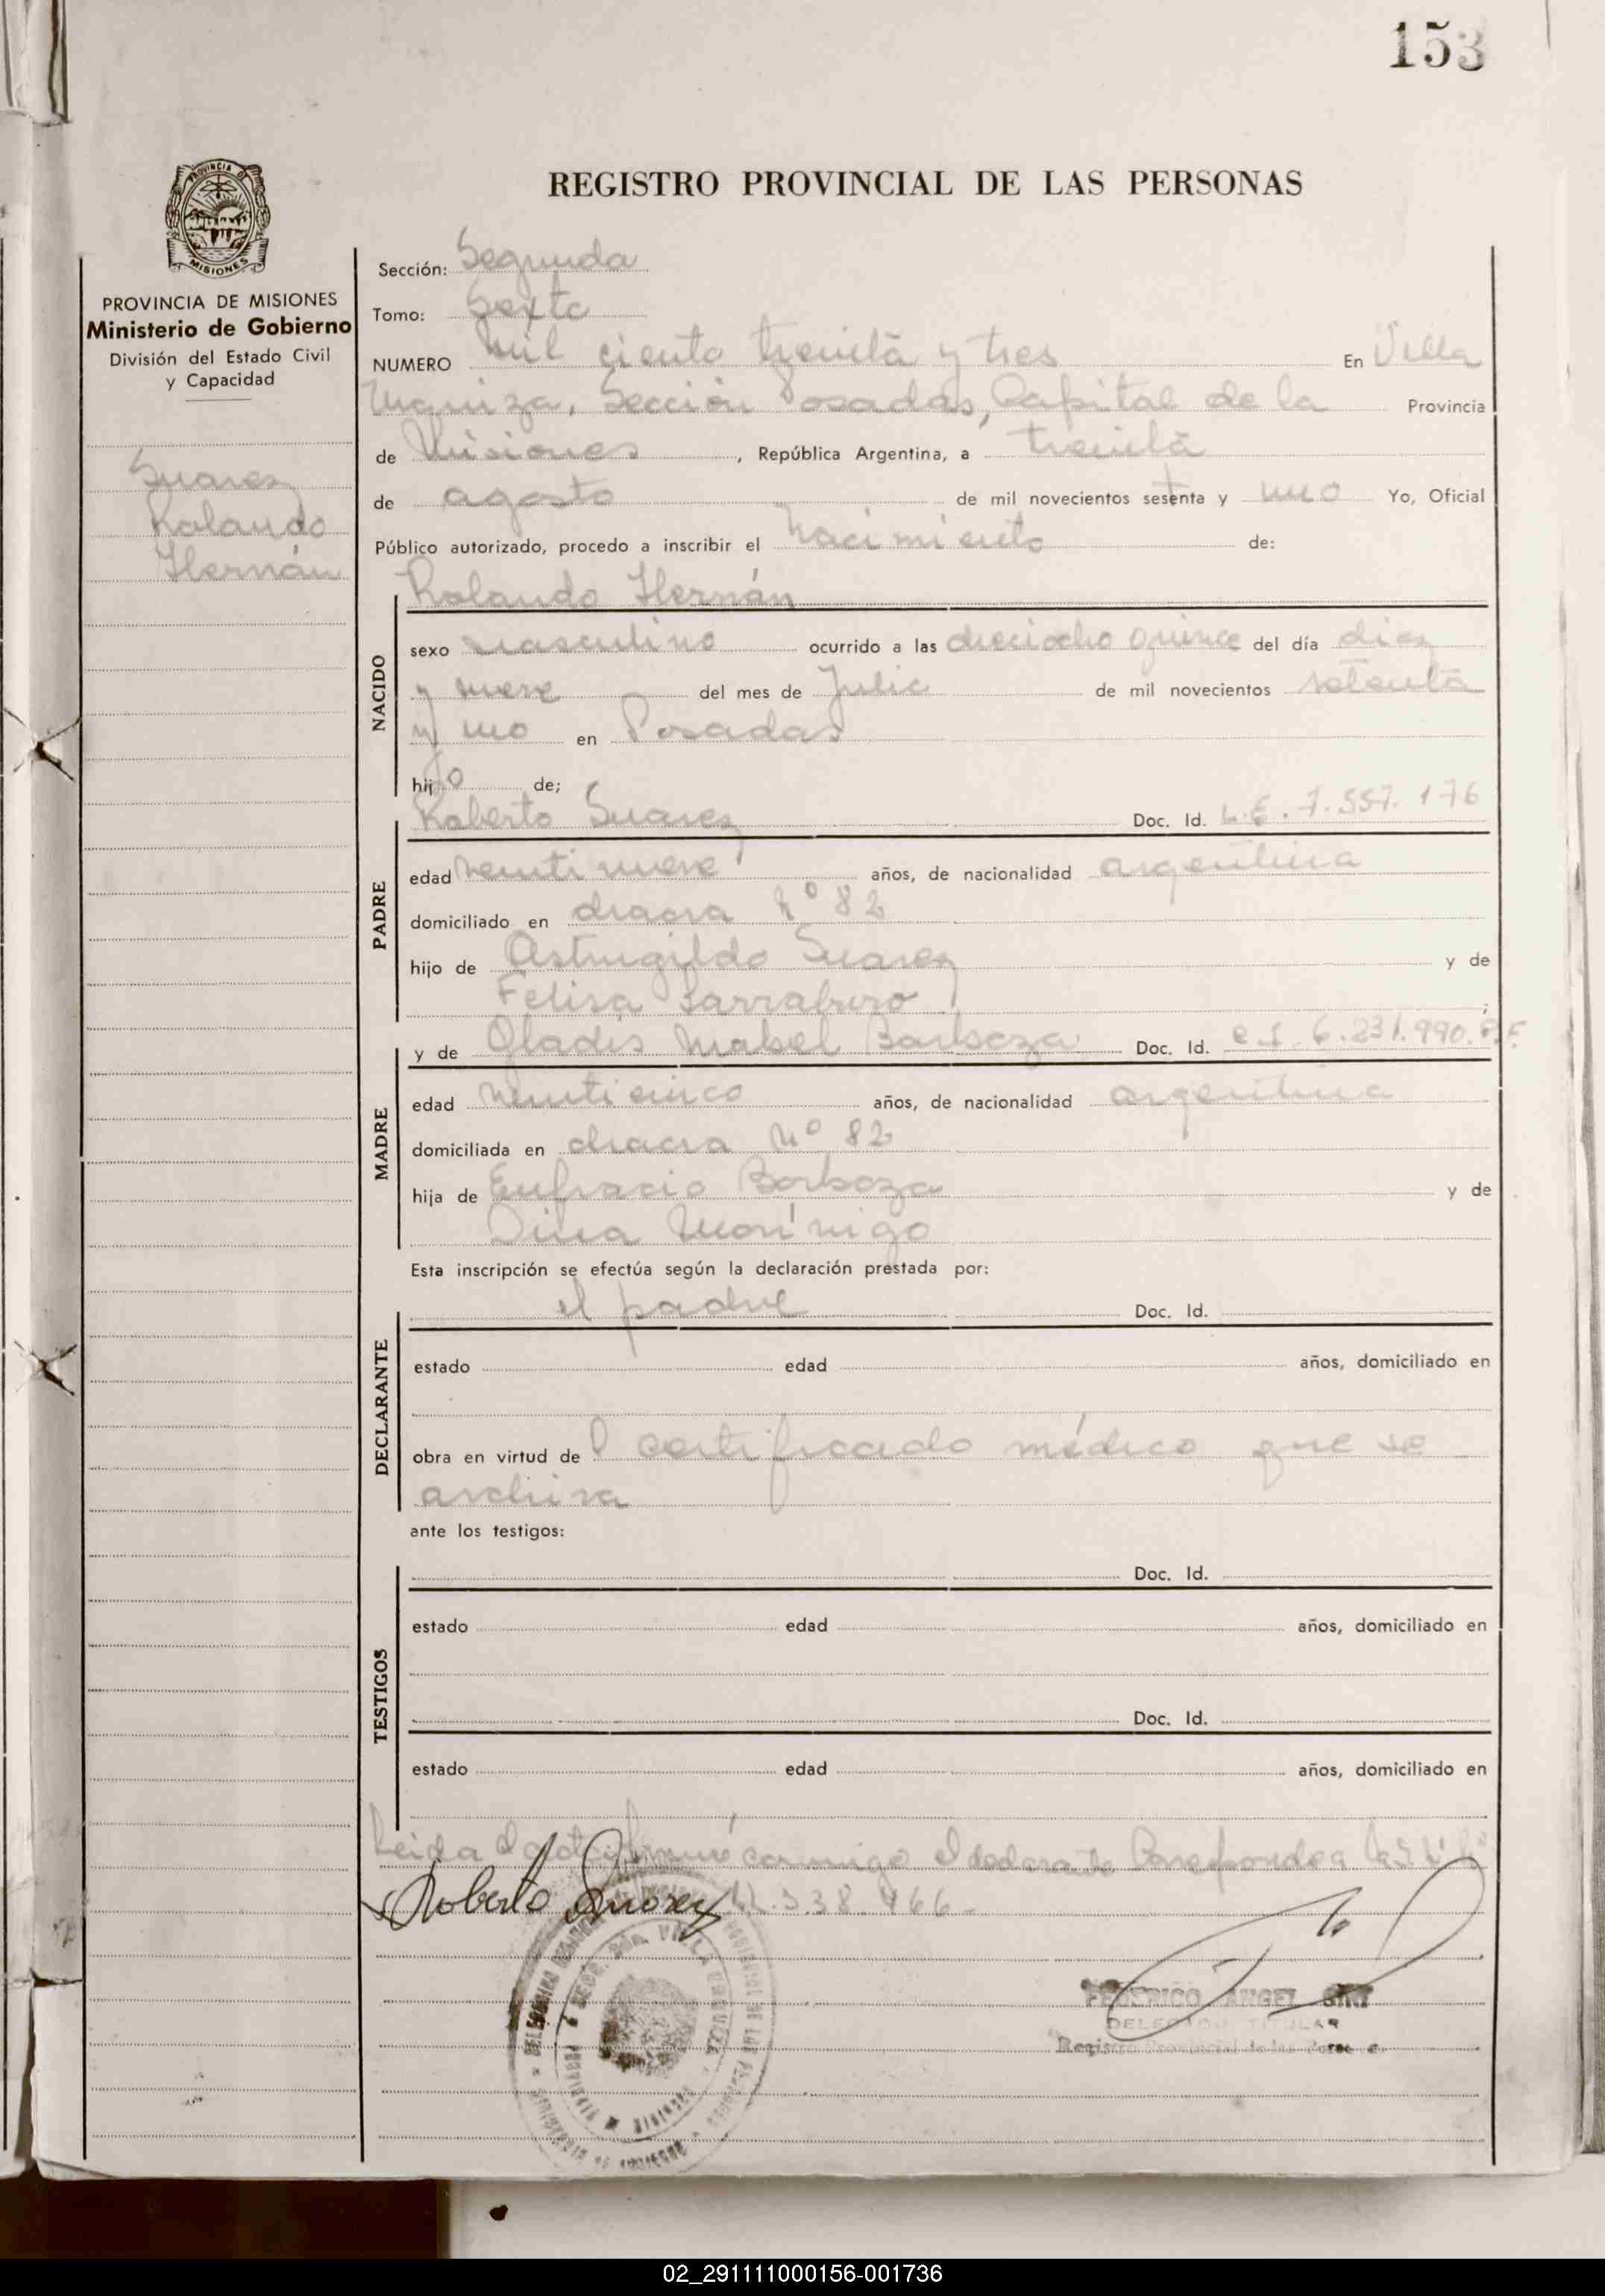 153
REGISTRO PROVINCIAL DE LAS PERSONAS
PROVINCIA DE MISIONES
PROVINCIA DE MISIONES
Ministerio de Gobierno
División del Estado Civil
y Capacidad
Suarez
Rolando
Hernán
Sección: Segunda
Tomo: Sexto
NUMERO mil ciento treinta y tres En Villa
Urquiza, Sección Posadas, Capital de la Provincia
de Misiones, República Argentina, a treinta
de agosto de mil novecientos setenta y uno Yo, Oficial
Público autorizado, procedo a inscribir el nacimiento de:
Rolando Hernán
NACIDO
sexo masculino ocurrido a las dieciocho quince del día diez
y nueve del mes de Julio de mil novecientos setenta
y uno en Posadas
hijo de;
Roberto Suarez Doc. Id. L.E. 7.557.176
PADRE
edad veintinueve años, de nacionalidad argentina
domiciliado en chacra Nº 82
hijo de Astrugildo Suarez y de
Felisa
y de Gladis Mabel Barboza Doc. Id. 6.231.990.
MADRE
edad veinticinco años, de nacionalidad argentina
domiciliada en chacra Nº 82
hija de Eufracio Borboza y de
Dina Morínigo
Esta inscripción se efectúa según la declaración prestada por:
el padre Doc. Id.
DECLARANTE
estado edad años, domiciliado en
obra en virtud del certificado médico que se
archiva
ante los testigos:
Doc. Id.
TESTIGOS
estado edad años, domiciliado en
Doc. Id.
estado edad años, domiciliado en
Leida el acta firmó conmigo el declarante Corresponde a
Roberto Suarez 22.338.466-
FEDERICO ANGEL
DELEGADO TITULAR
Registro Provincial de las Personas
02_291111000156-001736